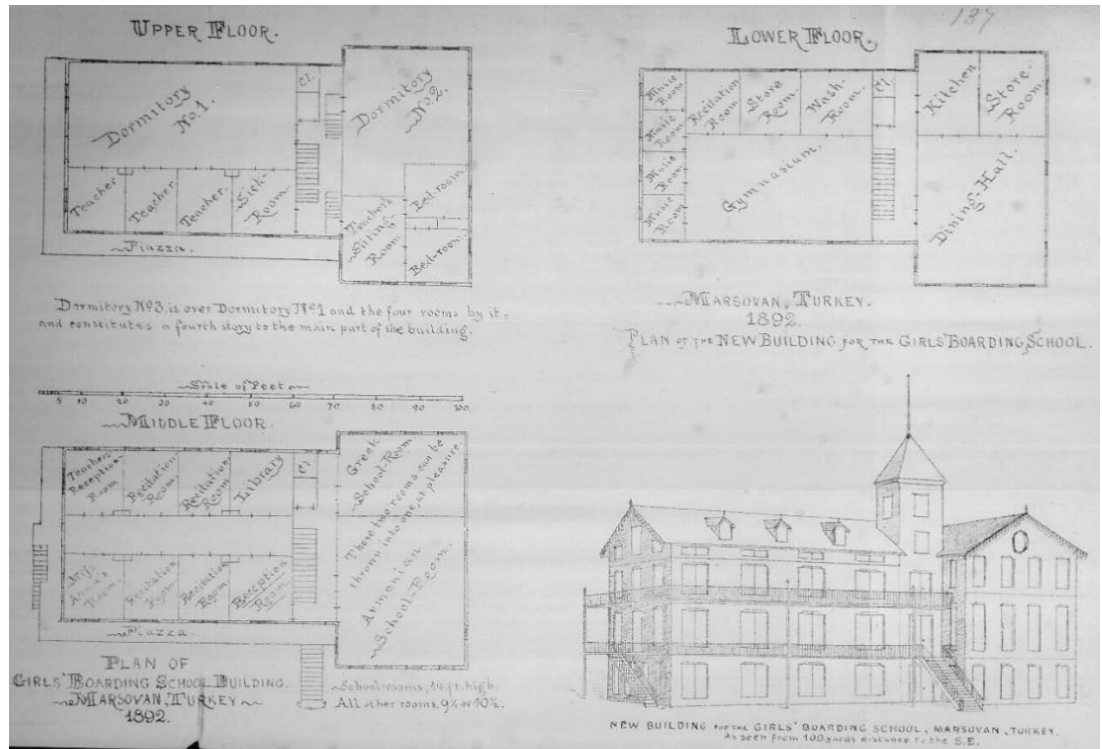 137
UPPER FLOOR.
Dormitory
No. 1.
Cl.
Dormitory
No. 2.
Teacher
Teacher.
Teacher.
Sick-
Room.
Teacher's
Sitting
Room
Bed-room
Bed-room
Piazza.
Dormitory No 3 is over Dormitory No 1 and the four rooms by it,
and constitutes a fourth story to the main part of the building.
LOWER FLOOR.
Music
Room
Music
Room
Music
Room
Music
Room
Recitation
Room
Store
Room.
Wash-
Room.
Cl.
Kitchen
Store-
Room.
Gymnasium.
Dining-Hall.
MARSOVAN, TURKEY.
1892.
PLAN OF THE NEW BUILDING FOR THE GIRLS' BOARDING SCHOOL.
Scale of Feet
5 10 20 30 40 50 60 70 80 90 100
MIDDLE FLOOR
Teachers
Reception
Room
Recitation
Room.
Recitation
Room
Library
Cl.
Greek
School-Room.
These two rooms can be
thrown into one, at pleasure.
Armenian
School-Room.
Room
Recitation
Room.
Recitation
Room
Reception
Room
Piazza
PLAN OF
GIRLS' BOARDING SCHOOL BUILDING.
MARSOVAN, TURKEY
1892.
School-rooms, 14 ft. high.
All other rooms, 9½ or 10½.
NEW BUILDING FOR THE GIRLS' BOARDING SCHOOL, MARSOVAN, TURKEY.
As seen from 100 yards distance to the S.E.